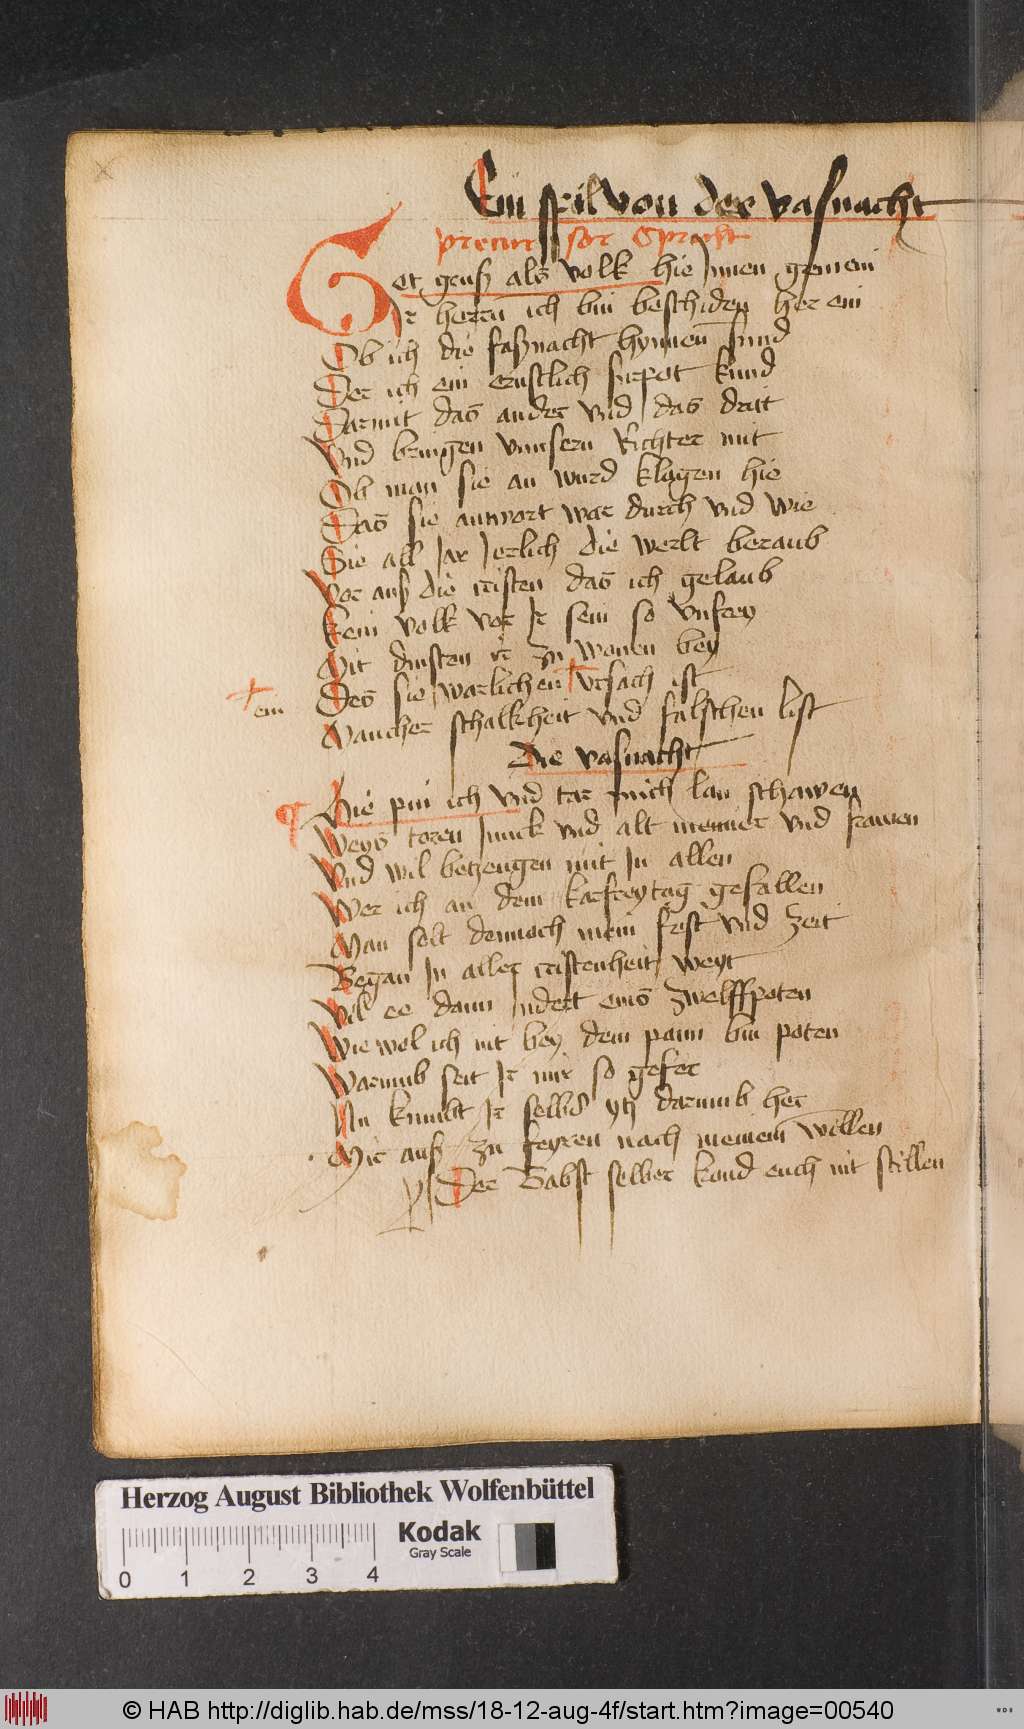 Ein spil von der vasnacht
precur sor Spricht
Got grusz als volk hie Innen gemein
Ir herrn ich bin beschiden her ein
Ob ich die fasznacht hynnen fund
Der ich ein ernstlich furpot kund
Darmit das ander vnd das drit
Vnd bringen vnnsern Richter mit
Ob man sie an wurd klagen hie
Das sie antwort war durch vnd wie
Sie all Jar Jerlich die werlt beraub
Vor ausz die cristen das ich gelaub
Kein volk vor Ir sein so vnfrey
Mit dinsten ir zu wonen bey
Des sie warlichen + vrsach ist
+ ein
Mancher schalkheit vnd falschen list
Die vasnacht
Hie pin ich vnd tar mich lan schawen
Weys toren Junck vnd alt menner vnd frawen
Vnd wil betzeugen mit In allen
Wer ich an dem karfreytag gefallen
Man solt dennoch mein frist vnd zeit
Began In aller cristenheit weyt
Vil ee dann Indert eins zwelffpoten
Wie wol ich nit bey dem pann bin poten
Warumb seit Ir mir so gefer
Nu kumbt Ir selbs ytz darumb her
Mir ausz zu feyren nach meinem willen
Der Babst selber kond euch nit stillen
Herzog August Bibliothek Wolfenbüttel
Kodak
Gray Scale
0 1 2 3 4
© HAB http://diglib.hab.de/mss/18-12-aug-4f/start.htm?image=00540